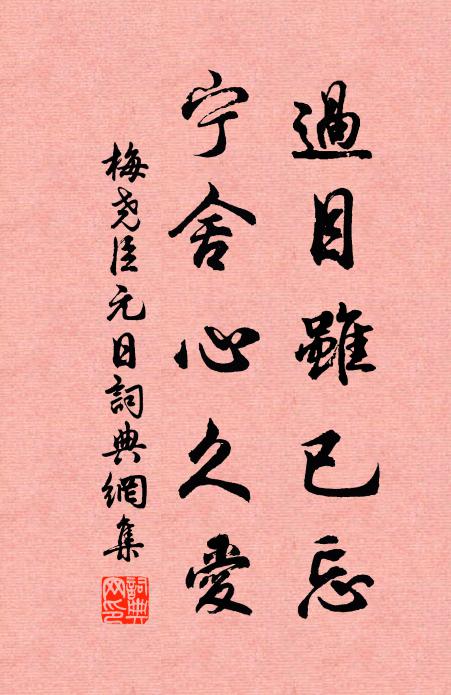 過目雖已忘
宁舍心久愛
梅尧臣元日詞典網集
詞典网印